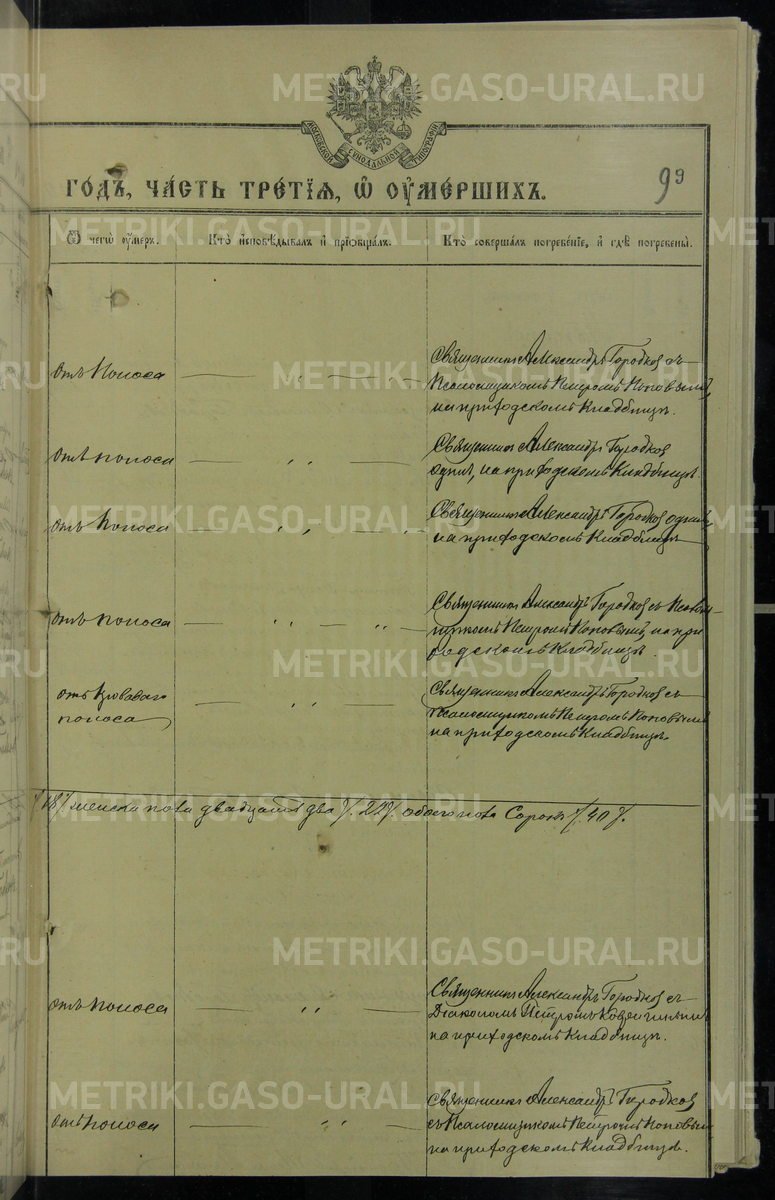 МОСКОВСКОЙ СѴНОДАЛЬНОЙ ТИПОГРАФІИ
ГОДЪ, ЧАСТЬ ТРЕТІЯ, Ѿ ОУМЕРШИХЪ.
99
Ѿ чегѡ оумеръ.
Кто исповѣдывалъ и пріобщалъ.
Кто совершалъ погребеніе, и гдѣ погребены.
отъ поноса
Священникъ Александръ Городковъ съ
Псаломщикомъ Петромъ Поповымъ,
на приходскомъ кладбищѣ.
отъ поноса
Священникъ Александръ Городковъ
одинъ, на приходскомъ кладбищѣ.
отъ поноса
Священникъ Александръ Городковъ одинъ,
на приходскомъ кладбищѣ
отъ поноса
Священникъ Александръ Городковъ съ Псалом-
щикомъ Петромъ Поповымъ, на при-
ходскомъ кладбищѣ.
отъ кроваваго
поноса
Священникъ Александръ Городковъ съ
Псаломщикомъ Петромъ Поповымъ
на приходскомъ кладбищѣ.
/18/ женска пола двадцать два /.22/. обоего пола Сорокъ /.40/.
отъ поноса
Священникъ Александръ Городковъ съ
Діакономъ Петромъ
на приходскомъ кладбищѣ.
отъ поноса
Священникъ Александръ Городковъ
съ Псаломщикомъ Петромъ Поповымъ
на приходскомъ кладбищѣ.
METRIKI.GASO-URAL.RU